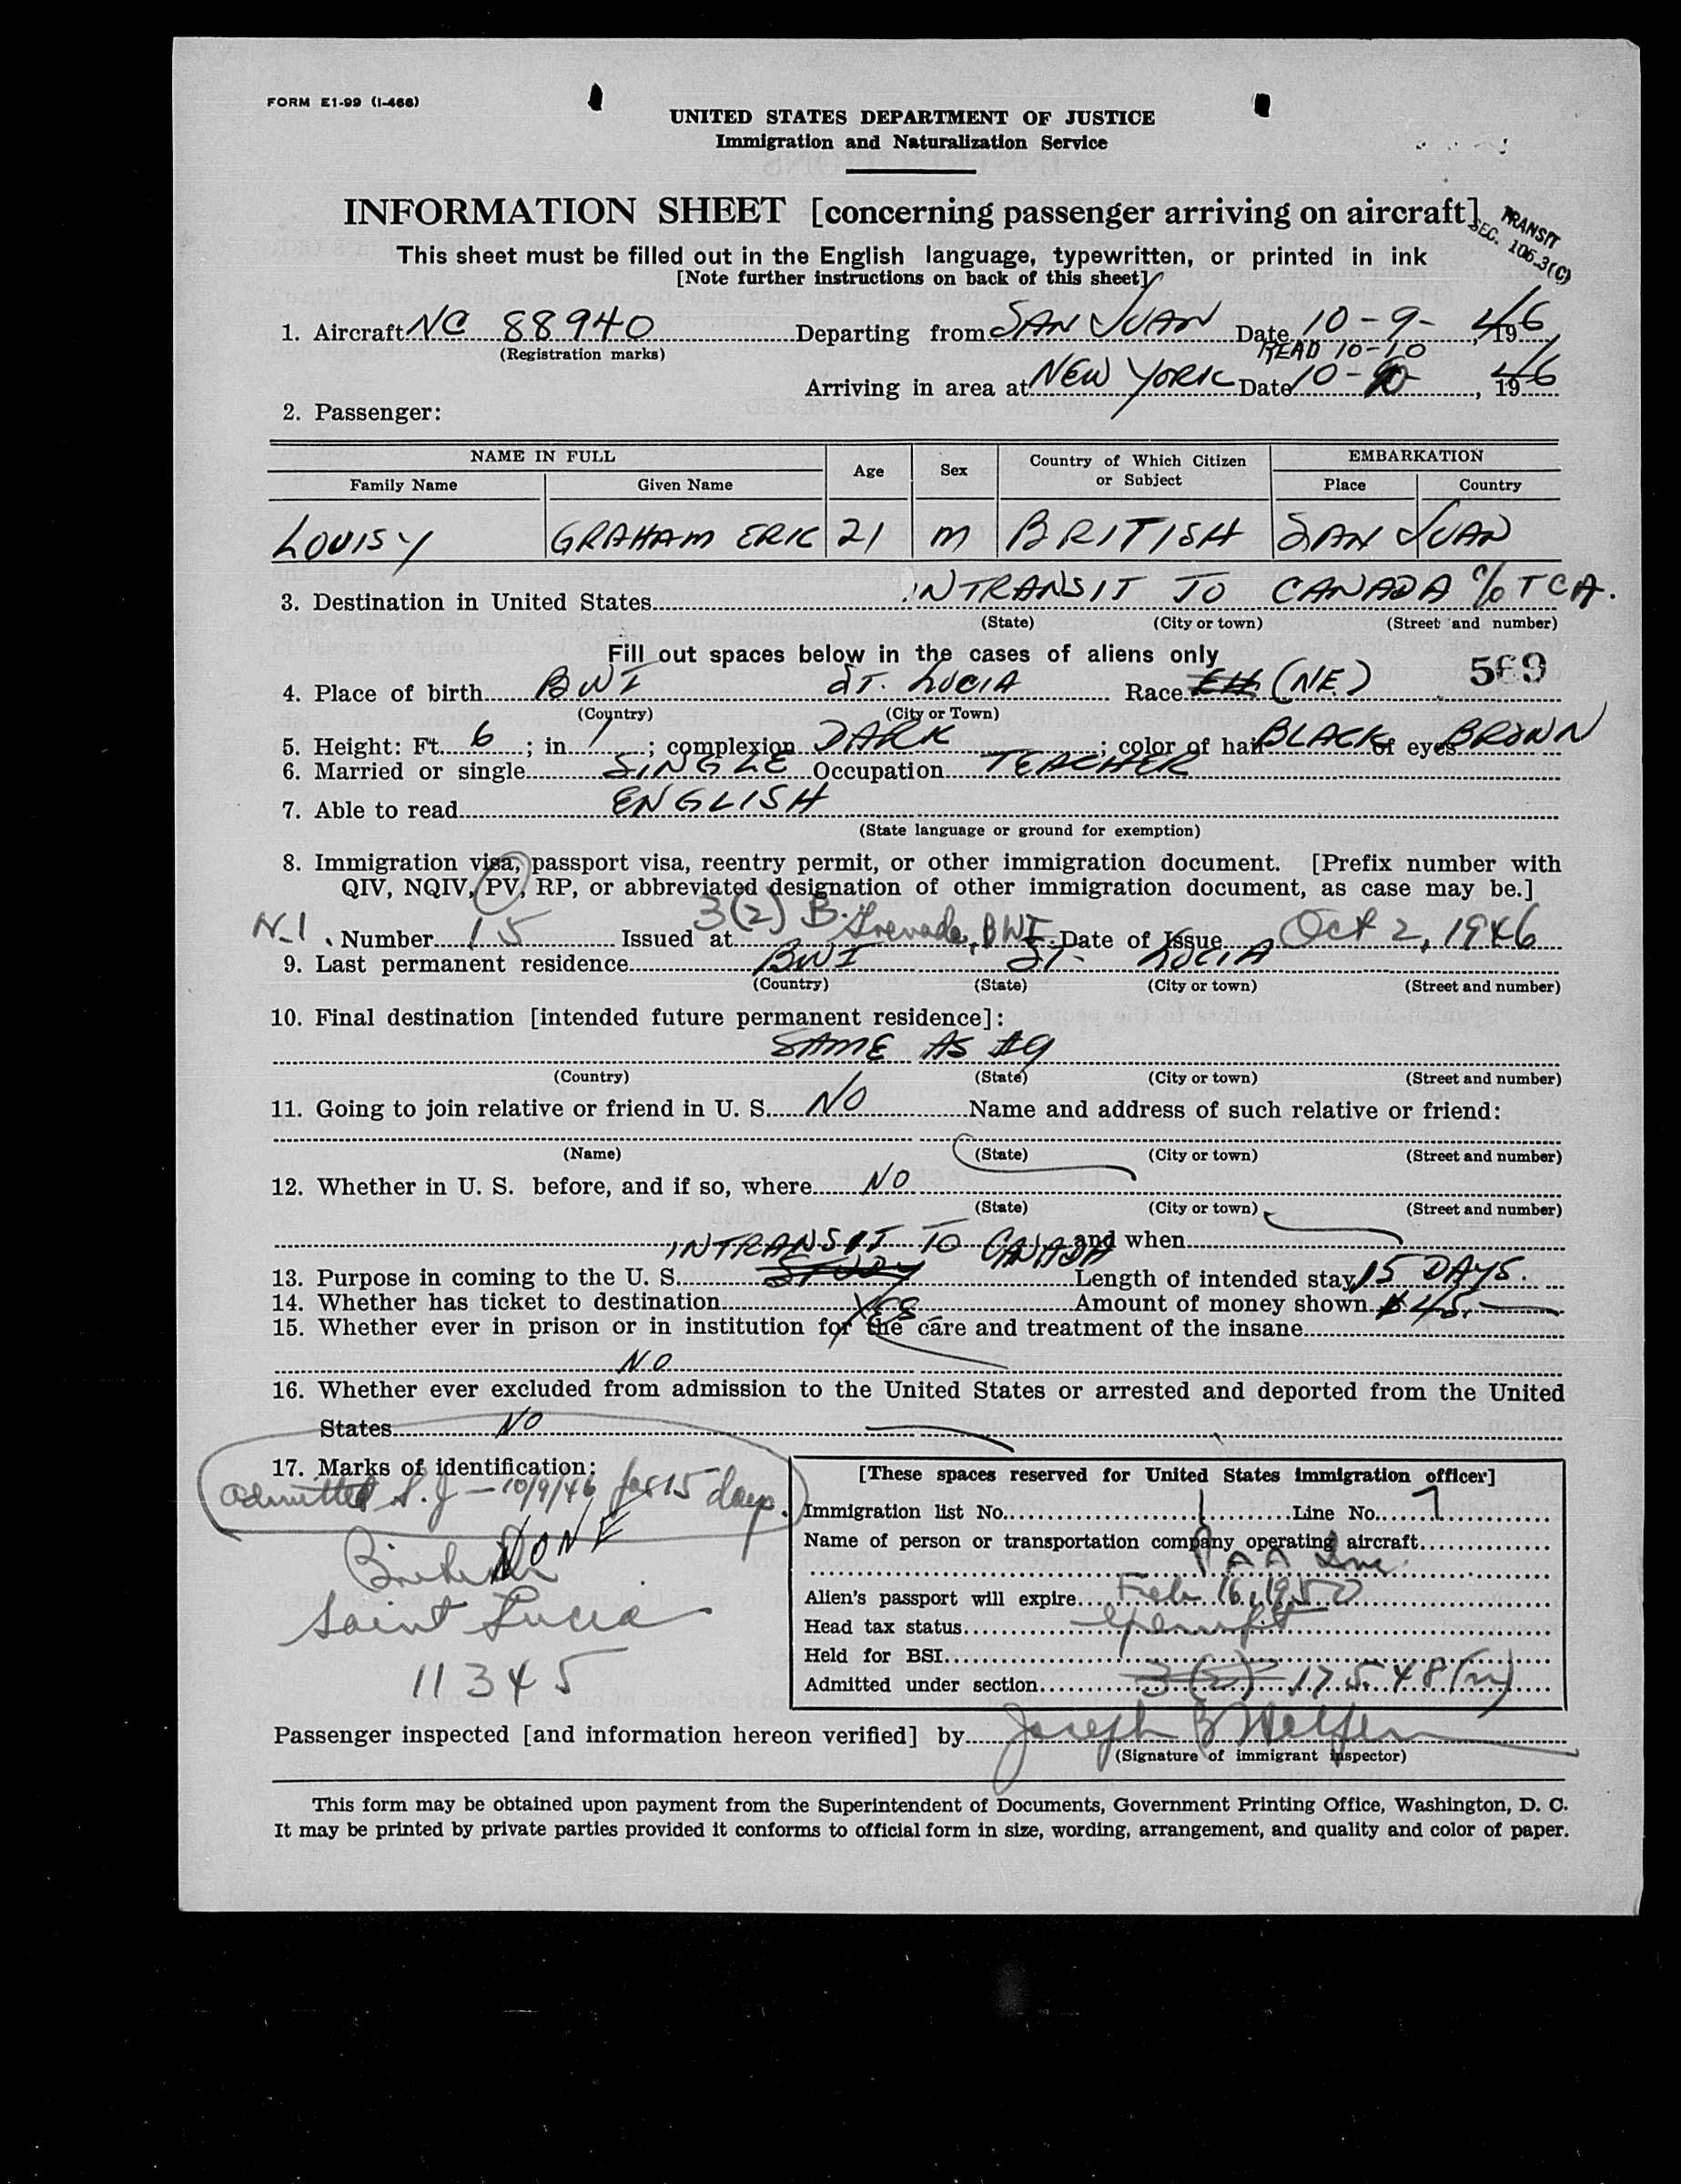 FORM E1-99 (I-466)
UNITED STATES DEPARTMENT OF JUSTICE
Immigration and Naturalization Service
INFORMATION SHEET [concerning passenger arriving on aircraft]
TRANSIT
SEC. 106.3(C)
This sheet must be filled out in the English language, typewritten, or printed in ink
[Note further instructions on back of this sheet]
1. Aircraft NC 88940 Departing from SAN JUAN Date 10-9-, 1946
(Registration marks)
READ 10-10
Arriving in area at NEW YORK Date 10-10, 1946
2. Passenger:
NAME IN FULL Age Sex Country of Which Citizen or Subject EMBARKATION
Family Name Given Name Place Country
LOUISY GRAHAM ERIC 21 M BRITISH SAN JUAN
3. Destination in United States INTRANSIT TO CANADA c/o TCA.
(State) (City or town) (Street and number)
Fill out spaces below in the cases of aliens only
569
4. Place of birth BWI ST. LUCIA Race (NE)
(Country) (City or Town)
5. Height: Ft. 6; in 1; complexion DARK; color of hair BLACK of eyes BROWN
6. Married or single SINGLE Occupation TEACHER
7. Able to read ENGLISH
(State language or ground for exemption)
8. Immigration visa, passport visa, reentry permit, or other immigration document. [Prefix number with
QIV, NQIV, PV, RP, or abbreviated designation of other immigration document, as case may be.]
3(2) B.
Number 15 Issued at Grenada, BWI Date of Issue Oct 2, 1946
9. Last permanent residence BWI ST. LUCIA
(Country) (State) (City or town) (Street and number)
10. Final destination [intended future permanent residence]:
SAME AS #9
(Country) (State) (City or town) (Street and number)
11. Going to join relative or friend in U. S. NO Name and address of such relative or friend:
(Name) (State) (City or town) (Street and number)
12. Whether in U. S. before, and if so, where NO
(State) (City or town) (Street and number)
and when
INTRANSIT TO CANADA
13. Purpose in coming to the U. S. STUDY Length of intended stay 15 DAYS.
14. Whether has ticket to destination YES Amount of money shown $45.
15. Whether ever in prison or in institution for the care and treatment of the insane
NO
16. Whether ever excluded from admission to the United States or arrested and deported from the United
States NO
17. Marks of identification:
admitted S.J - 10/9/46 for 15 days.
NONE
British
Saint Lucia
11345
[These spaces reserved for United States immigration officer]
Immigration list No. 1 Line No. 7
Name of person or transportation company operating aircraft
P A A Inc.
Alien's passport will expire Feb 16, 1950
Head tax status exempt
Held for BSI
Admitted under section 3(2) 175.48(n)
Passenger inspected [and information hereon verified] by Joseph
(Signature of immigrant inspector)
This form may be obtained upon payment from the Superintendent of Documents, Government Printing Office, Washington, D. C.
It may be printed by private parties provided it conforms to official form in size, wording, arrangement, and quality and color of paper.